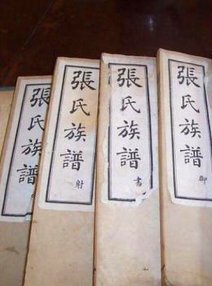 張氏族譜 御
張氏族譜 書
張氏族譜 射
張氏族譜